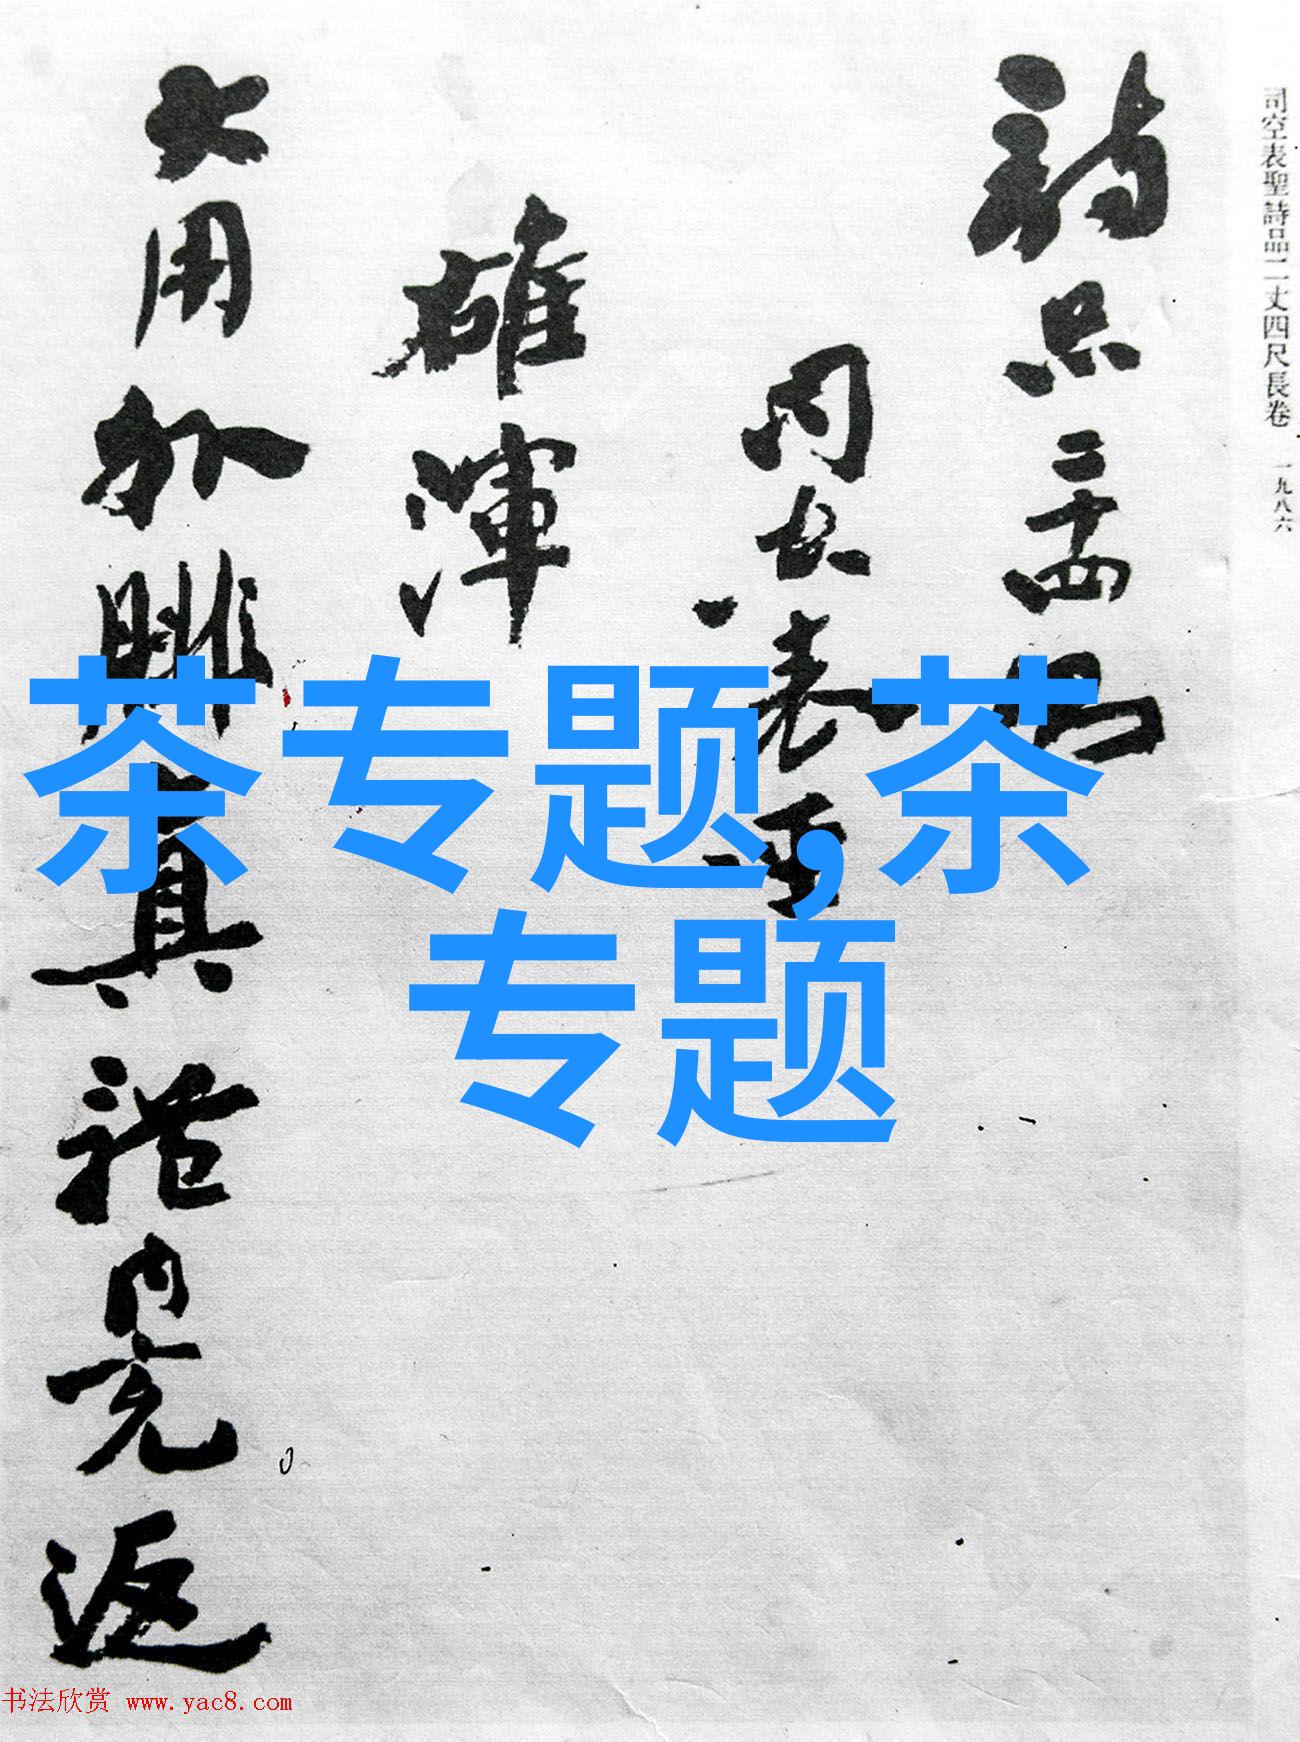 司空表聖詩品二丈四尺長卷 一九八六
詩品二十四則
司空表聖
雄渾
大用外腓真體內充返
茶专题,茶
专题
书法欣赏 www.yac8.com